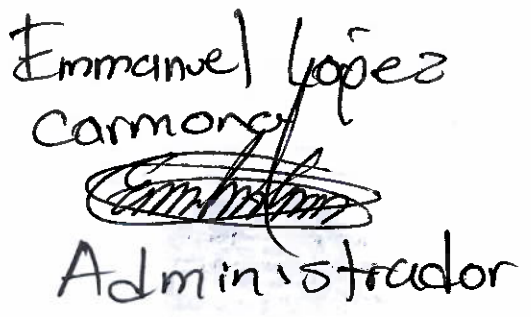 Emmanuel López
Carmona
Administrador